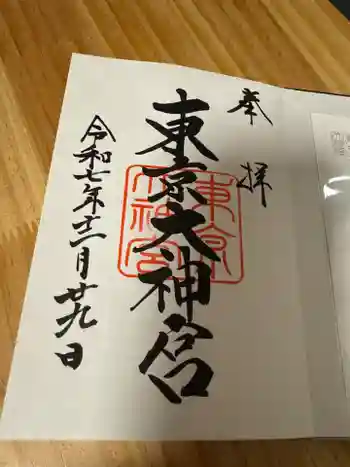 奉拝
東京大神宮
東京大神宮
令和七年十二月廿九日